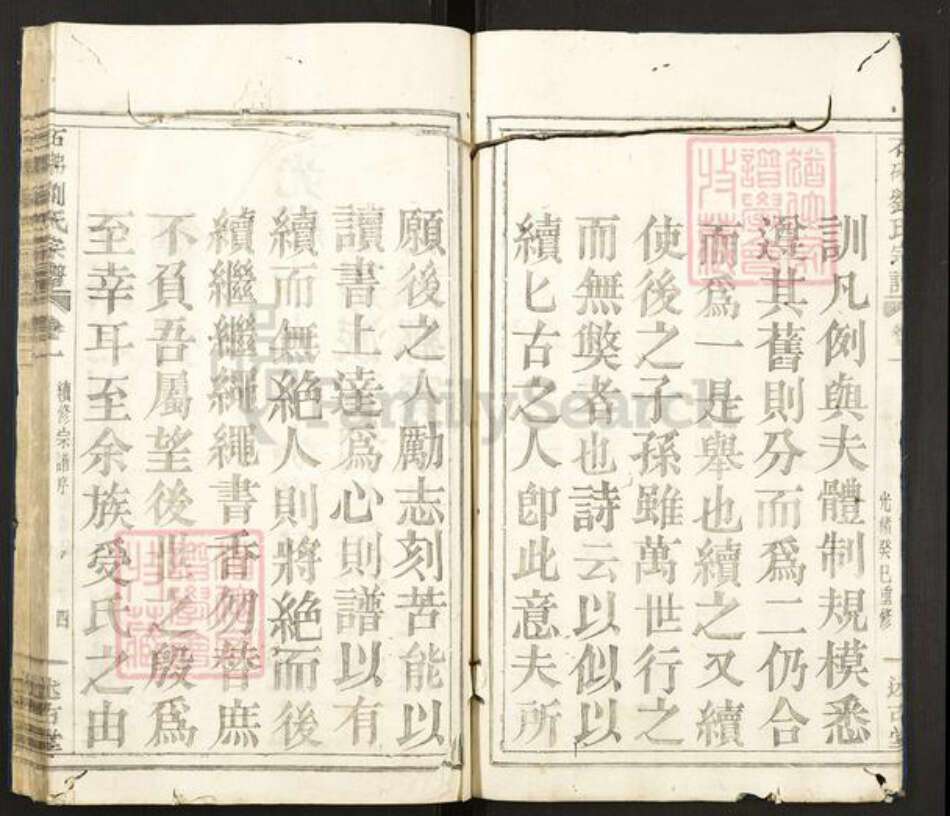 訓凡例與夫體制規模悉
遵其舊則分而爲二仍合
而爲一是舉也續之又續
使後之子孫雖萬世行之
而無獘者也詩云以似以
續匕古之人卽此意夫所
願後之人勵志刻苦能以
讀書上達爲心則譜以有
續而無絶人則將絶而後
續繼繼繩繩書香勿替庶
不負吾屬望後世之殷爲
至幸耳至余族受氏之由
光緒癸巳重修
劉氏宗譜
卷一
續修宗譜序
四
述古堂
FamilySearch